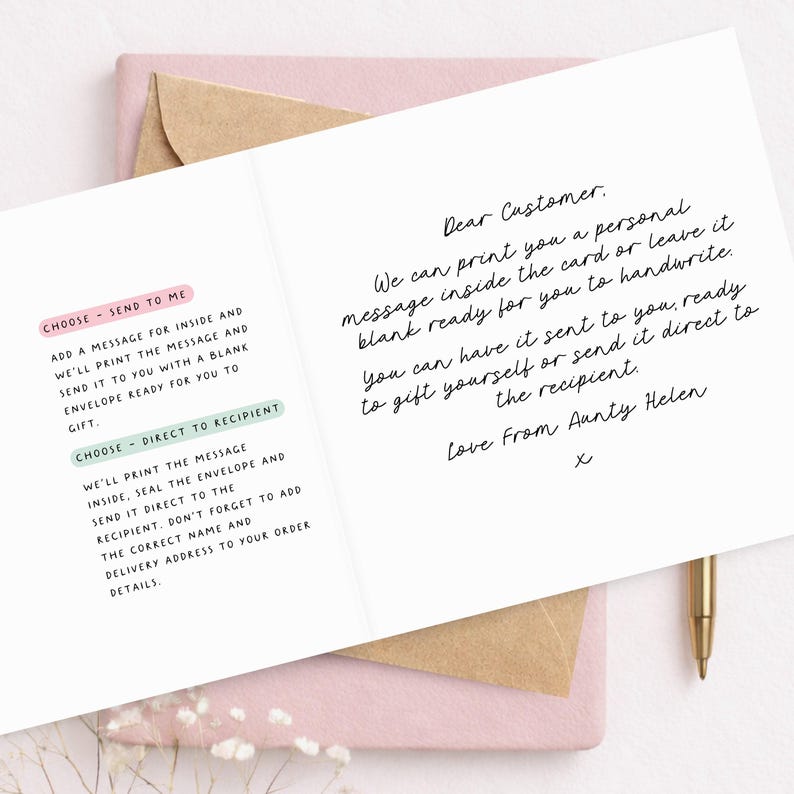 CHOOSE - SEND TO ME
ADD A MESSAGE FOR INSIDE AND
WE'LL PRINT THE MESSAGE AND
SEND IT TO YOU WITH A BLANK
ENVELOPE READY FOR YOU TO
GIFT.
CHOOSE - DIRECT TO RECIPIENT
WE'LL PRINT THE MESSAGE
INSIDE, SEAL THE ENVELOPE AND
SEND IT DIRECT TO THE
RECIPIENT. DON'T FORGET TO ADD
THE CORRECT NAME AND
DELIVERY ADDRESS TO YOUR ORDER
DETAILS.
Dear Customer,
We can print you a personal
message inside the card or leave it
blank ready for you to handwrite.
You can have it sent to you, ready
to gift yourself or send it direct to
the recipient.
Love From Aunty Helen
x